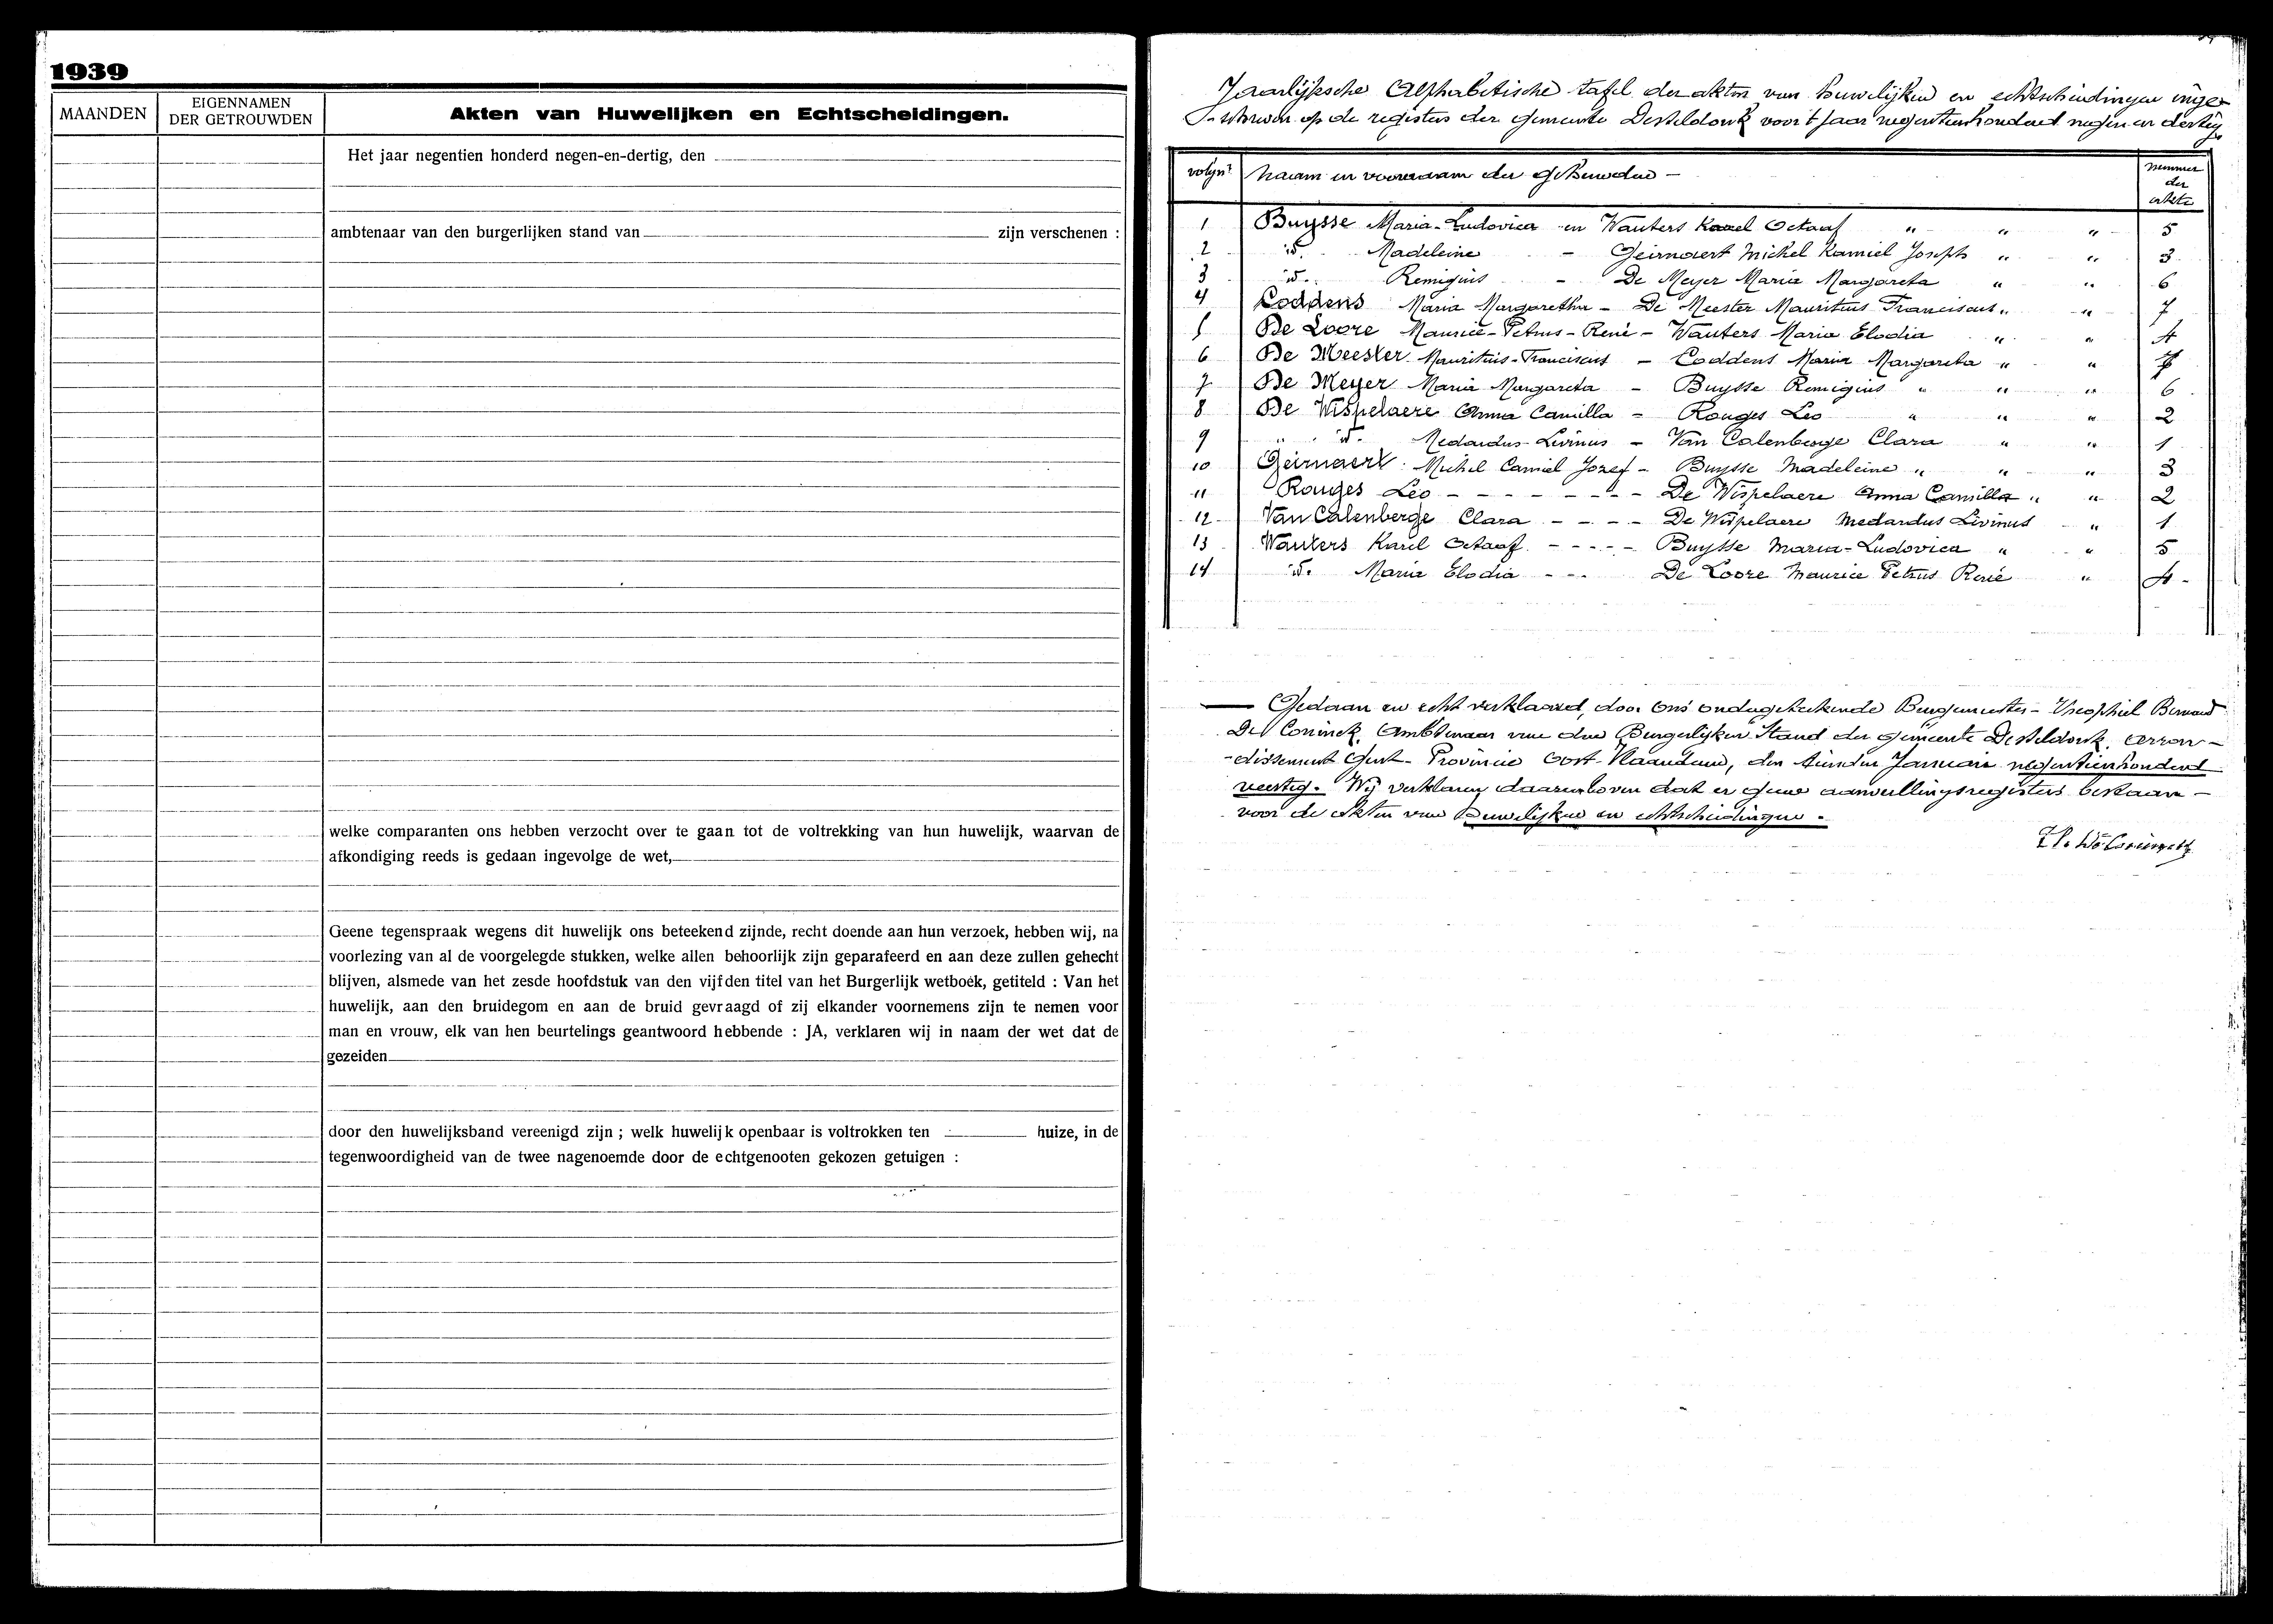 1939
MAANDEN
EIGENNAMEN
DER GETROUWDEN
Akten van Huwelijken en Echtscheidingen.
Het jaar negentien honderd negen-en-dertig, den
ambtenaar van den burgerlijken stand van zijn verschenen :
welke comparanten ons hebben verzocht over te gaan tot de voltrekking van hun huwelijk, waarvan de
afkondiging reeds is gedaan ingevolge de wet,
Geene tegenspraak wegens dit huwelijk ons beteekend zijnde, recht doende aan hun verzoek, hebben wij, na
voorlezing van al de voorgelegde stukken, welke allen behoorlijk zijn geparafeerd en aan deze zullen gehecht
blijven, alsmede van het zesde hoofdstuk van den vijfden titel van het Burgerlijk wetboek, getiteld : Van het
huwelijk, aan den bruidegom en aan de bruid gevraagd of zij elkander voornemens zijn te nemen voor
man en vrouw, elk van hen beurtelings geantwoord hebbende : JA, verklaren wij in naam der wet dat de
gezeiden
door den huwelijksband vereenigd zijn ; welk huwelijk openbaar is voltrokken ten huize, in de
tegenwoordigheid van de twee nagenoemde door de echtgenooten gekozen getuigen :
Jaarlijksche Alphabetische tafel der akten van huwelijken en echtscheidingen inge-
schreven op de registers der gemeente Desteldonk voor 't jaar negentienhonderd negen en dertig
volgnr naam en voornaam der gehuwden - nummer der akten
1 Buysse Maria-Ludovica en Wauters Karel Octaaf " " " 5
2 id. Madeleine - Geirnaert Michel Kamiel Joseph " " 3
3 id. Remigius - De Meyer Maria Margareta " " 6
4 Coddens Maria Margaretha - De Meester Mauritius Franciscus " " 7
5 De Loore Maurice-Petrus-René - Wauters Maria Elodia " " 4
6 De Meester Mauritius-Franciscus - Coddens Maria Margareta " " 7
7 De Meyer Maria Margareta - Buysse Remigius " " " 6
8 De Wispelaere Anna Camilla - Rouges Leo " " " 2
9 " id. Medardus-Livinus - Van Calenberge Clara " " 1
10 Geirnaert Michel Camiel Jozef - Buysse Madeleine " " " 3
11 Rouges Leo - - - - - - - De Wispelaere Anna Camilla " " 2
12 Van Calenberge Clara - - - - De Wispelaere Medardus Livinus " 1
13 Wauters Karel Octaaf - - - - - Buysse Maria-Ludovica " " 5
14 id. Maria Elodia - - - De Loore Maurice Petrus René " 4 -
Gedaan en echt verklaard, door ons ondergeteekende Burgemeester - Theophiel Bernard
De Coninck, Ambtenaar van den Burgerlijken Stand der gemeente Desteldonk, arron-
-dissement Gent - Provincie Oost-Vlaanderen, den tienden Januari negentienhonderd
veertig. Wij verklaren daarenboven dat er geene aanvullingsregisters bestaan -
voor de akten van huwelijken en echtscheidingen.
Th. De Coninck